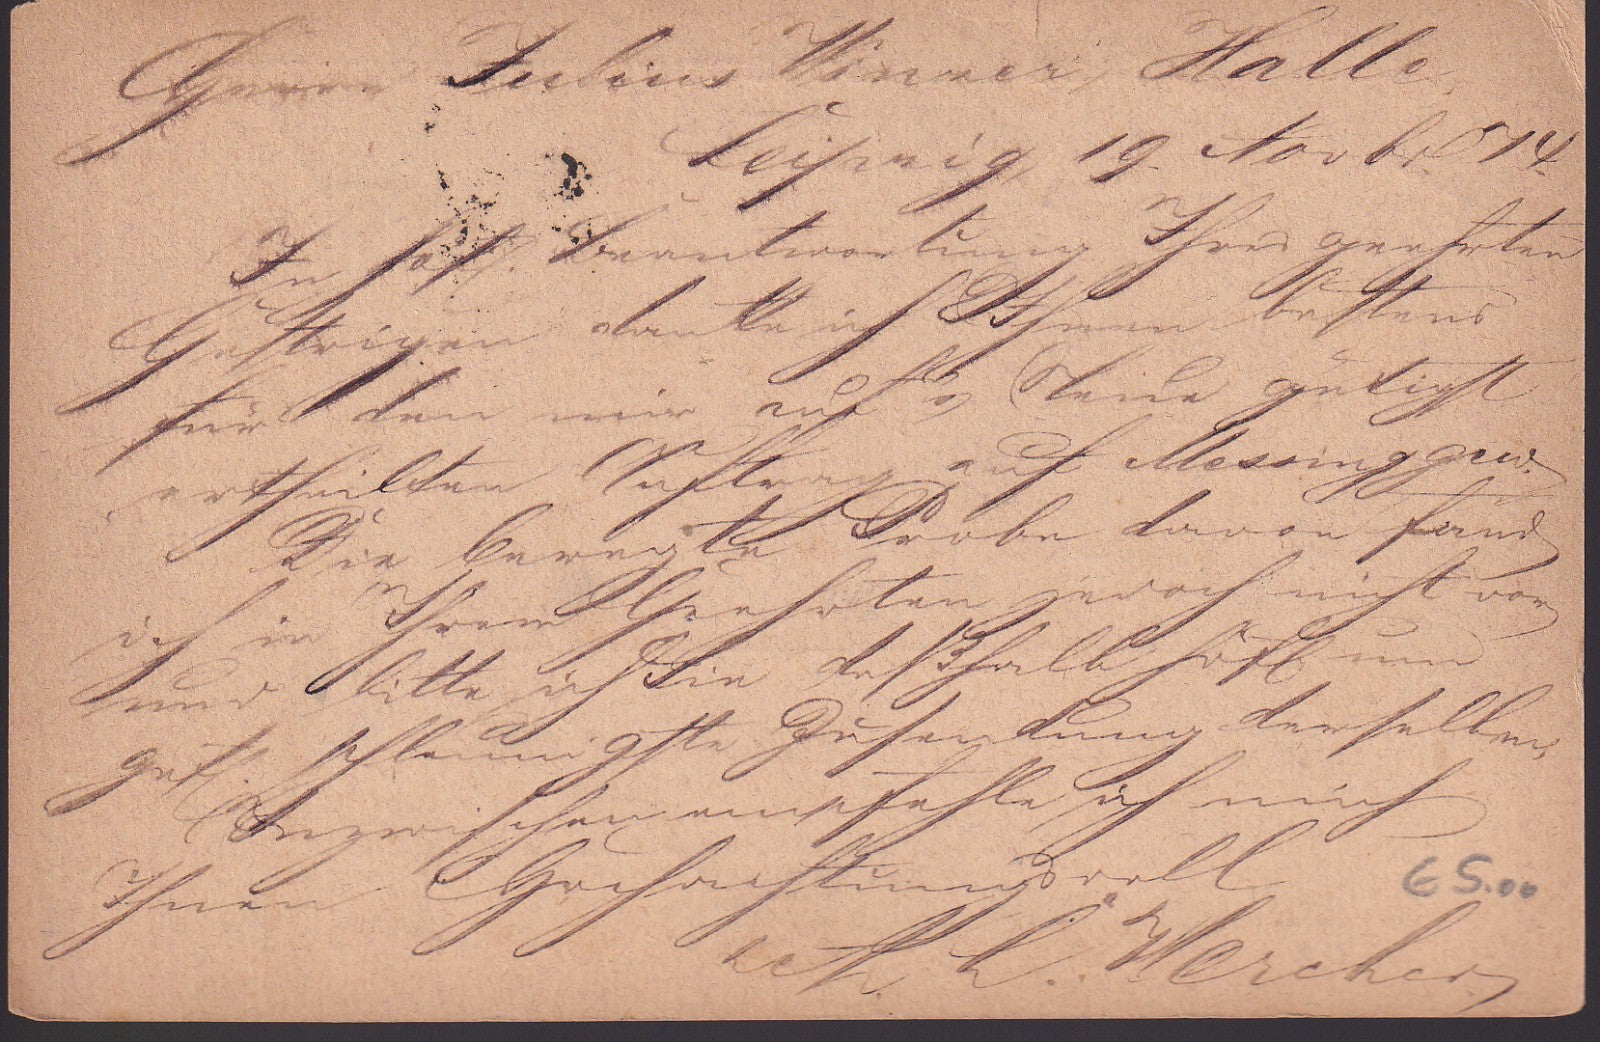 Herrn Julius Winner, Halle
Leipzig, 19. Novbr. 74.
In höfl. Beantwortung Ihres geehrten
Gestrigen danke ich Ihnen bestens
für den mir auf's Neue gütigst
ertheilten Auftrag auf Messinggew.
Die beregte Probe davon fand
ich in Ihrem Geehrten jedoch nicht vor
und bitte ich Sie deßhalb höfl. um
gefl. schleunigste Zusendung derselben,
Inzwischen empfehle ich mich
Ihnen Hochachtungsvoll
€ 5.00